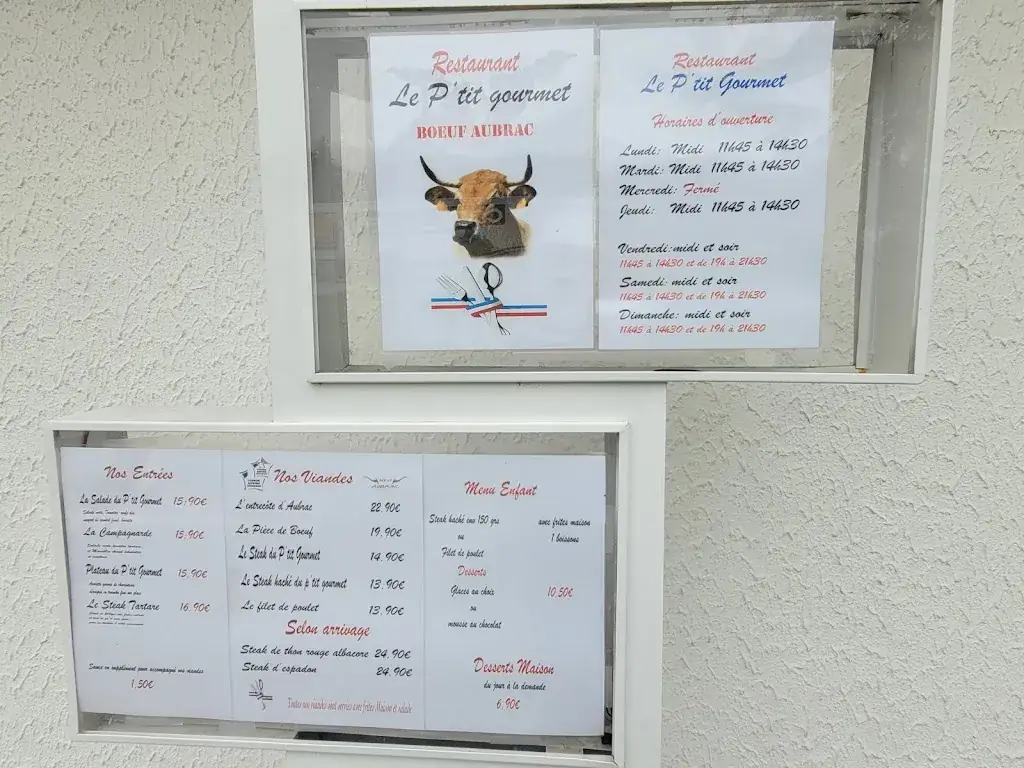 Restaurant
Le P'tit gourmet
BOEUF AUBRAC
Restaurant
Le P'tit Gourmet
Horaires d'ouverture
Lundi: Midi 11h45 à 14h30
Mardi: Midi 11h45 à 14h30
Mercredi: Fermé
Jeudi: Midi 11h45 à 14h30
Vendredi: midi et soir
11h45 à 14h30 et de 19h à 21h30
Samedi: midi et soir
11h45 à 14h30 et de 19h à 21h30
Dimanche: midi et soir
11h45 à 14h30 et de 19h à 21h30
Nos Entrées
La Salade du P'tit Gourmet 15,90€
La Campagnarde 15,90€
Plateau du P'tit Gourmet 15,90€
Le Steak Tartare 16,90€
Sauces en supplément pour accompagné vos viandes
1,50€
Nos Viandes
AUBRAC
L'entrecôte d'Aubrac 22,90€
La Pièce de Boeuf 19,90€
Le Steak du P'tit Gourmet 14,90€
Le Steak haché du p'tit gourmet 13,90€
Le filet de poulet 13,90€
Selon arrivage
Steak de thon rouge albacore 24,90€
Steak d'espadon 24,90€
Toutes nos viandes sont servies avec frites Maison et salade
Menu Enfant
Steak haché env 150 grs avec frites maison
ou 1 boissons
Filet de poulet
Desserts
Glaces au choix 10,50€
ou
mousse au chocolat
Desserts Maison
du jour à la demande
6,90€